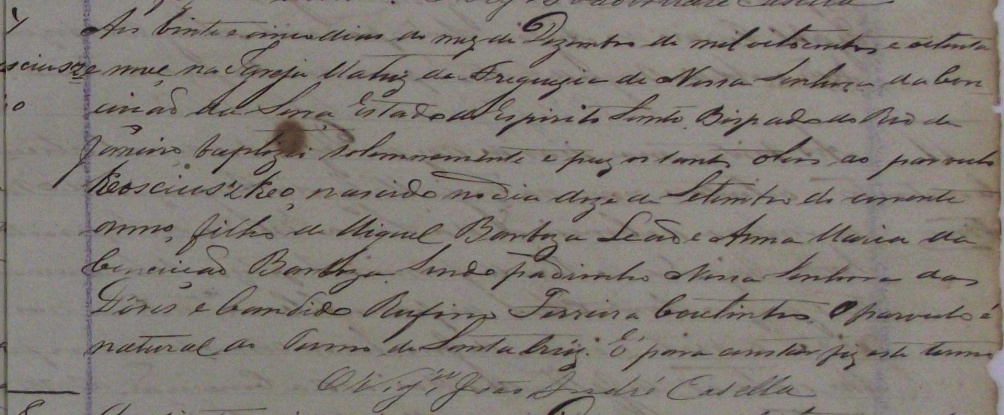 Aos vinte e cinco dias do mez de Dezembro de mil oitocentos e oitenta
e nove na Igreja Matriz da Freguezia de Nossa Senhora da Con
ceicão da Serra Estado do Espirito Santo, Bispado do Rio de
Janeiro, baptizei solemnemente e puz os santos oleos ao parvulo
Kosciuszko, nascido no dia doze de Setembro do corrente
anno, filho de Miguel Barboza Leão e Anna Maria da
Conceicão Barboza. Sendo padrinho Nossa Senhora das
Dôres e Candido Rufino Ferreira Coutinho. O parvulo é
natural do Termo de Santa Cruz. E para constar fiz este termo
O Vigrº João André Casella